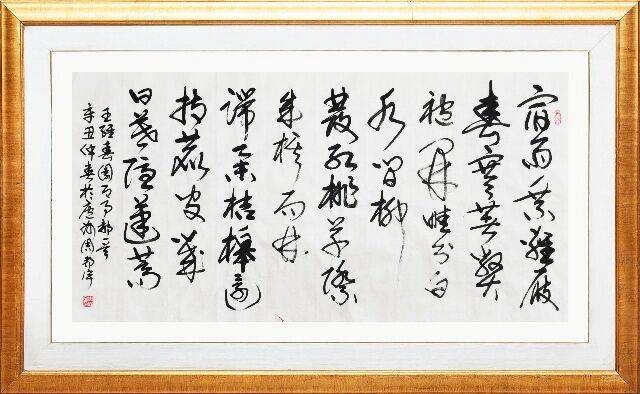 宿雨乘輕屐
春寒著弊
袍開畦分白
水間柳
發紅桃草際
成棋局林
端舉桔槔還
持鹿皮几
日暮隱蓬蒿
王維春園即事
辛丑仲春於